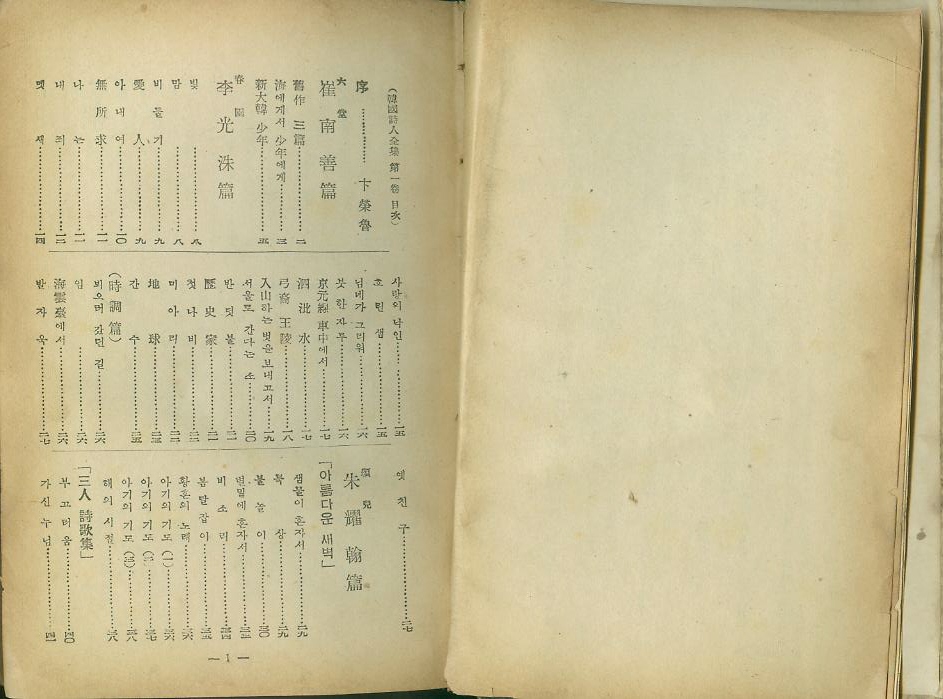 (韓國詩人全集 第一卷 目次)
序…………卞榮魯
六堂
崔南善篇
舊作 三篇…………二
海에게서 少年에게…………三
新大韓 少年…………五
春園
李光洙篇
빛…………八
맘…………八
비둘기…………九
愛人…………九
아내여…………一〇
無所求…………一一
나는…………一一
내 죄…………一二
멧새…………一四
사랑의 낙인…………一五
흐린 샘…………一五
님네가 그리워…………一六
붓 한 자루…………一六
京元線 車中에서…………一七
泗沘水…………一七
弓裔王陵…………一八
入山하는 벗을 보내고서…………一九
서울로 간다는 소…………二〇
반딧불…………二一
歷史家…………二一
첫 나비…………二二
미아리…………二二
地球…………二三
간수…………二五
(時調篇)
뵈오러 갔던 길…………二六
임…………二六
海雲臺에서…………二六
발자욱…………二七
옛 친구…………二七
頌兒
朱耀翰篇
「아름다운 새벽」
샘물이 혼자서…………二九
특상…………二九
불놀이…………三〇
별밑에 혼자서…………三三
비소리…………三四
봄달잡이…………三五
황혼의 노래…………三六
아기의 기도 (一)…………三六
아기의 기도 (二)…………三七
아기의 기도 (三)…………三八
해의 시절…………三八
「三人 詩歌集」
부끄러움…………四〇
가신 누님…………四一
— 1 —